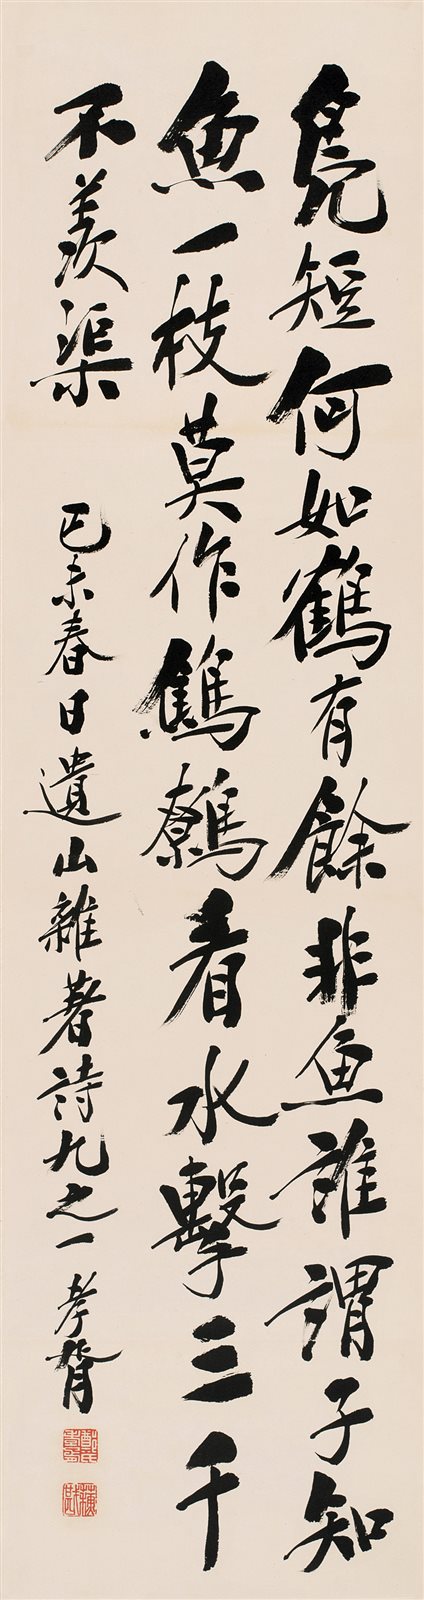 鳧短何如鶴有餘非魚誰謂子知
魚一枝莫作鷦鷯看水擊三千
不羨渠
己未春日遺山雜著詩九之一 孝胥